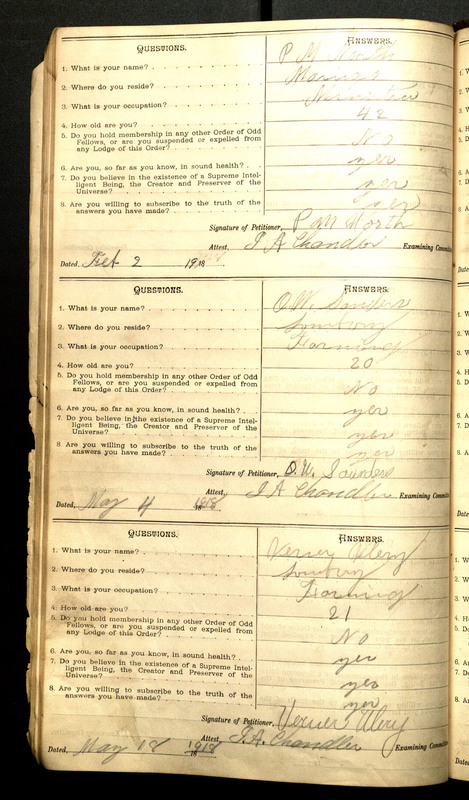 QUESTIONS. ANSWERS.
1. What is your name? P M North
2. Where do you reside?
3. What is your occupation?
4. How old are you? 42
5. Do you hold membership in any other Order of Odd
Fellows, or are you suspended or expelled from
any Lodge of this Order? No
6. Are you, so far as you know, in sound health? yes
7. Do you believe in the existence of a Supreme Intel-
ligent Being, the Creator and Preserver of the
Universe? yes
8. Are you willing to subscribe to the truth of the
answers you have made? yes
Signature of Petitioner, P M North
Attest, J A Chandler Examining Committe
Dated, Feb 2 1918
QUESTIONS. ANSWERS.
1. What is your name? O.W. Saunders
2. Where do you reside?
3. What is your occupation? Farming
4. How old are you? 20
5. Do you hold membership in any other Order of Odd
Fellows, or are you suspended or expelled from
any Lodge of this Order? No
6. Are you, so far as you know, in sound health? yes
7. Do you believe in the existence of a Supreme Intel-
ligent Being, the Creator and Preserver of the
Universe? yes
8. Are you willing to subscribe to the truth of the
answers you have made? yes
Signature of Petitioner, O. W. Saunders
Attest, J A Chandler Examining Committe
Dated, May 4 1918
QUESTIONS. ANSWERS.
1. What is your name? Verner Ulery
2. Where do you reside?
3. What is your occupation? Farming
4. How old are you? 21
5. Do you hold membership in any other Order of Odd
Fellows, or are you suspended or expelled from
any Lodge of this Order? No
6. Are you, so far as you know, in sound health? yes
7. Do you believe in the existence of a Supreme Intel-
ligent Being, the Creator and Preserver of the
Universe? yes
8. Are you willing to subscribe to the truth of the
answers you have made? yes
Signature of Petitioner, Verner Ulery
Attest, J.A. Chandler Examining Committe
Dated, May 18 1918